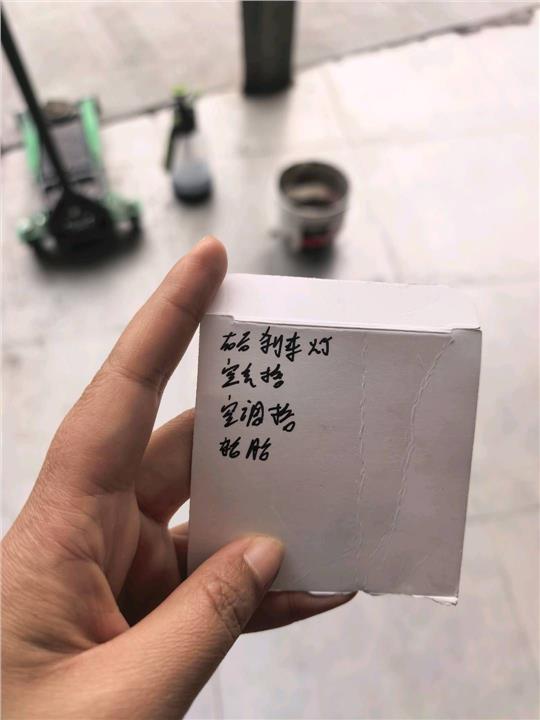 右后刹车灯
空气格
空调格
轮胎